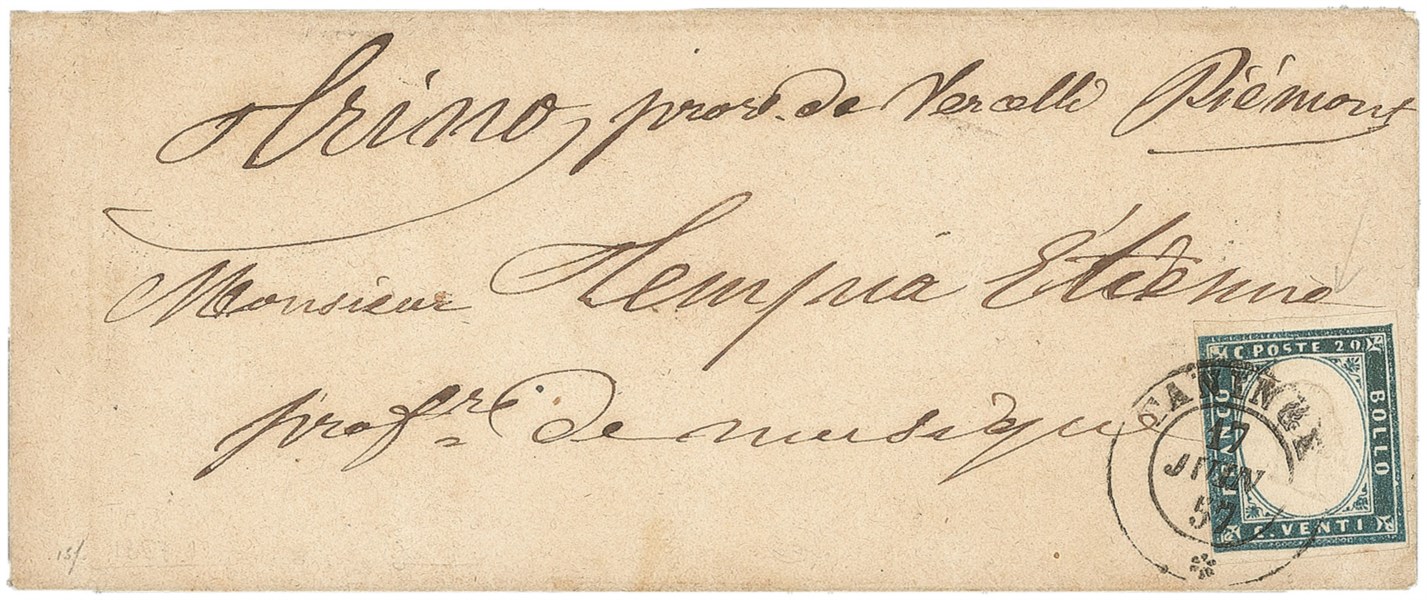 Trino, prov. de Vercelli Piémont
Monsieur Étienne
profre. de musique
C. POSTE 20
BOLLO
C. VENTI
FRANCO
TANINGES
17
JUIN
57